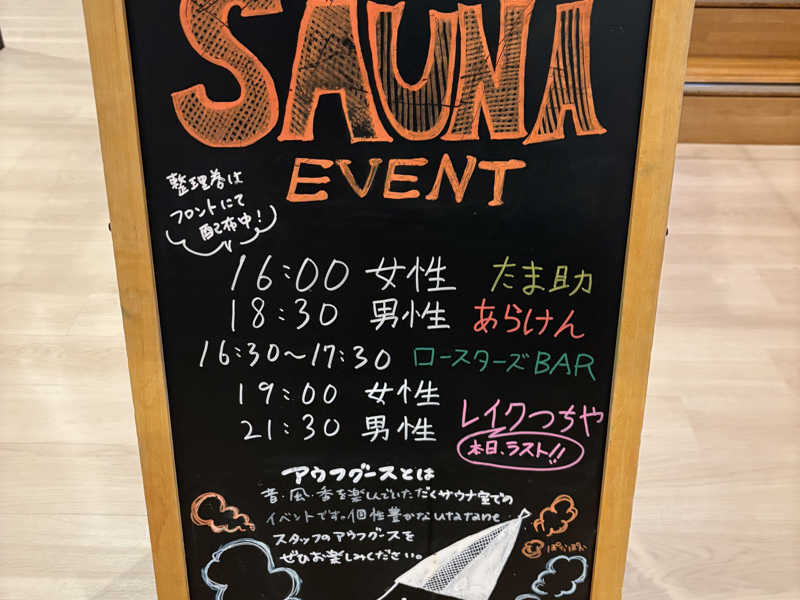 SAUNA
EVENT
整理券は
フロントにて
配布中！
16:00 女性 たま助
18:30 男性 あらけん
16:30〜17:30 ロースターズBAR
19:00 女性
21:30 男性
レイクつちや
本日、ラスト!!
アウフグースとは
音・風・香を楽しんでいただくサウナ室での
イベントです。個性豊かなutatane
スタッフのアウフグースを
ぜひお楽しみください。
ぽかぽか